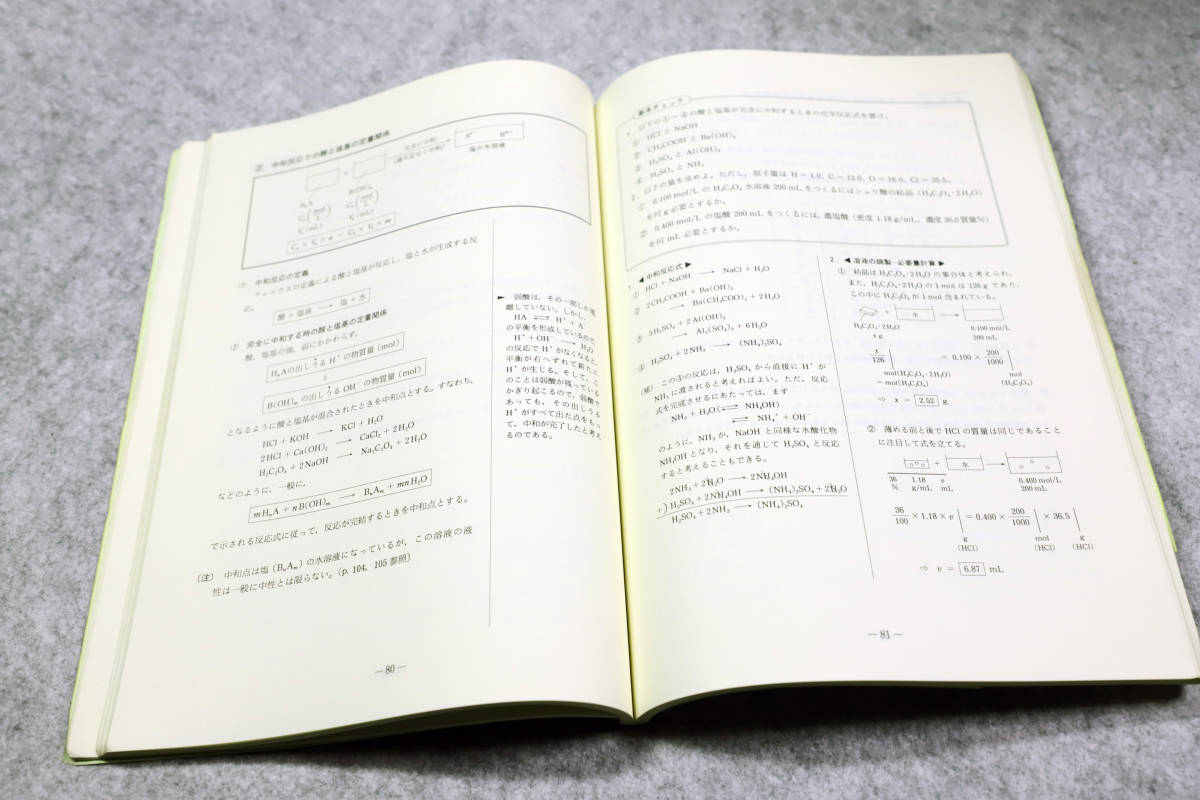 ② 中和反応での酸と塩基の定量関係
完全に中和
(過不足なく中和)
Aⁿ⁻ Bᵐ⁺
塩の水溶液
+
HₙA
B(OH)ₘ
C₁(mol/L)
V₁(mL)
C₂(mol/L)
V₂(mL)
C₁ × V₁ × n = C₂ × V₂ × m
(1) 中和反応の定義
アレニウスの定義による酸と塩基が反応し，塩と水が生成する反
応。
酸 + 塩基 → 塩 + 水
(2) 完全に中和する時の酸と塩基の定量関係
酸，塩基の強，弱にかかわらず，
HₙAの出しうる H⁺ の物質量(mol)
B(OH)ₘ の出しうる OH⁻ の物質量(mol)
となるように酸と塩基が混合されたときを中和点とする。すなわち，
HCl + KOH → KCl + H₂O
2HCl + Ca(OH)₂ → CaCl₂ + 2H₂O
H₂C₂O₄ + 2NaOH → Na₂C₂O₄ + 2H₂O
などのように，一般に，
mHₙA + nB(OH)ₘ → BₙAₘ + mnH₂O
で示される反応式に従って，反応が完結するときを中和点とする。
(注) 中和点は塩(BₙAₘ)の水溶液になっているが，この溶液の液
性は一般に中性とは限らない。(p. 104, 105 参照)
► 弱酸は，その一部しか電
離していない。しかし，
HA ⇄ H⁺ + A⁻
の平衡を形成しているので，
H⁺ + OH⁻ → H₂O
の反応で H⁺ がなくなると，
平衡が右へずれて新たに
H⁺ が生じる。そして，こ
のことは弱酸が残っている
かぎり起こるので，弱酸で
あっても，その出しうる
H⁺ がすべて出た点をもっ
て，中和が完了したと考え
るのである。
— 80 —
基本チェック
1. 以下の①〜④の酸と塩基が完全に中和するときの化学反応式を書け。
① HCl と NaOH
② CH₃COOH と Ba(OH)₂
③ H₂SO₄ と Al(OH)₃
④ H₂SO₄ と NH₃
2. 以下の量を求めよ。ただし，原子量は H = 1.0, C = 12.0, O = 16.0, Cl = 35.5。
① 0.100 mol/L の H₂C₂O₄ 水溶液 200 mL をつくるにはシュウ酸の結晶 (H₂C₂O₄·2H₂O)
を何 g 必要とするか。
② 0.400 mol/L の塩酸 200 mL をつくるには，濃塩酸(密度 1.18 g/mL，濃度 36.0 質量%)
を何 mL 必要とするか。
1. ◀ 中和反応式 ▶
① HCl + NaOH → NaCl + H₂O
② 2CH₃COOH + Ba(OH)₂
→ Ba(CH₃COO)₂ + 2H₂O
③ 3H₂SO₄ + 2Al(OH)₃
→ Al₂(SO₄)₃ + 6H₂O
④ H₂SO₄ + 2NH₃ → (NH₄)₂SO₄
(補) この④の反応は，H₂SO₄ から直接に H⁺ が
NH₃ に渡されると考えればよい。ただ，反応
式を完成させるにあたっては，まず
NH₃ + H₂O(⇄ NH₄OH)
⇄ NH₄⁺ + OH⁻
のように，NH₃ が，NaOH と同様な水酸化物
NH₄OH となり，それを通じて H₂SO₄ と反応
すると考えることもできる。
2NH₃ + 2H₂O → 2NH₄OH
+) H₂SO₄ + 2NH₄OH → (NH₄)₂SO₄ + 2H₂O
H₂SO₄ + 2NH₃ → (NH₄)₂SO₄
2. ◀ 溶液の調製—必要量計算 ▶
① 結晶は H₂C₂O₄·2H₂O の集合体と考えられ，
また，H₂C₂O₄·2H₂O の 1 mol は 126 g であり，
この中に H₂C₂O₄ が 1 mol 含まれている。
+ 水 →
H₂C₂O₄·2H₂O 0.100 mol/L
x g 200 mL
x/126 | = 0.100 × 200/1000 |
mol(H₂C₂O₄·2H₂O) mol
= mol(H₂C₂O₄) (H₂C₂O₄)
⇒ x = 2.52 g
② 薄める前と後で HCl の質量は同じであること
に注目して式を立てる。
+ 水 →
36 1.18 v 0.400 mol/L
% g/mL mL 200 mL
36/100 × 1.18 × v | = 0.400 × 200/1000 | × 36.5 |
g mol g
(HCl) (HCl) (HCl)
⇒ v = 6.87 mL
— 81 —